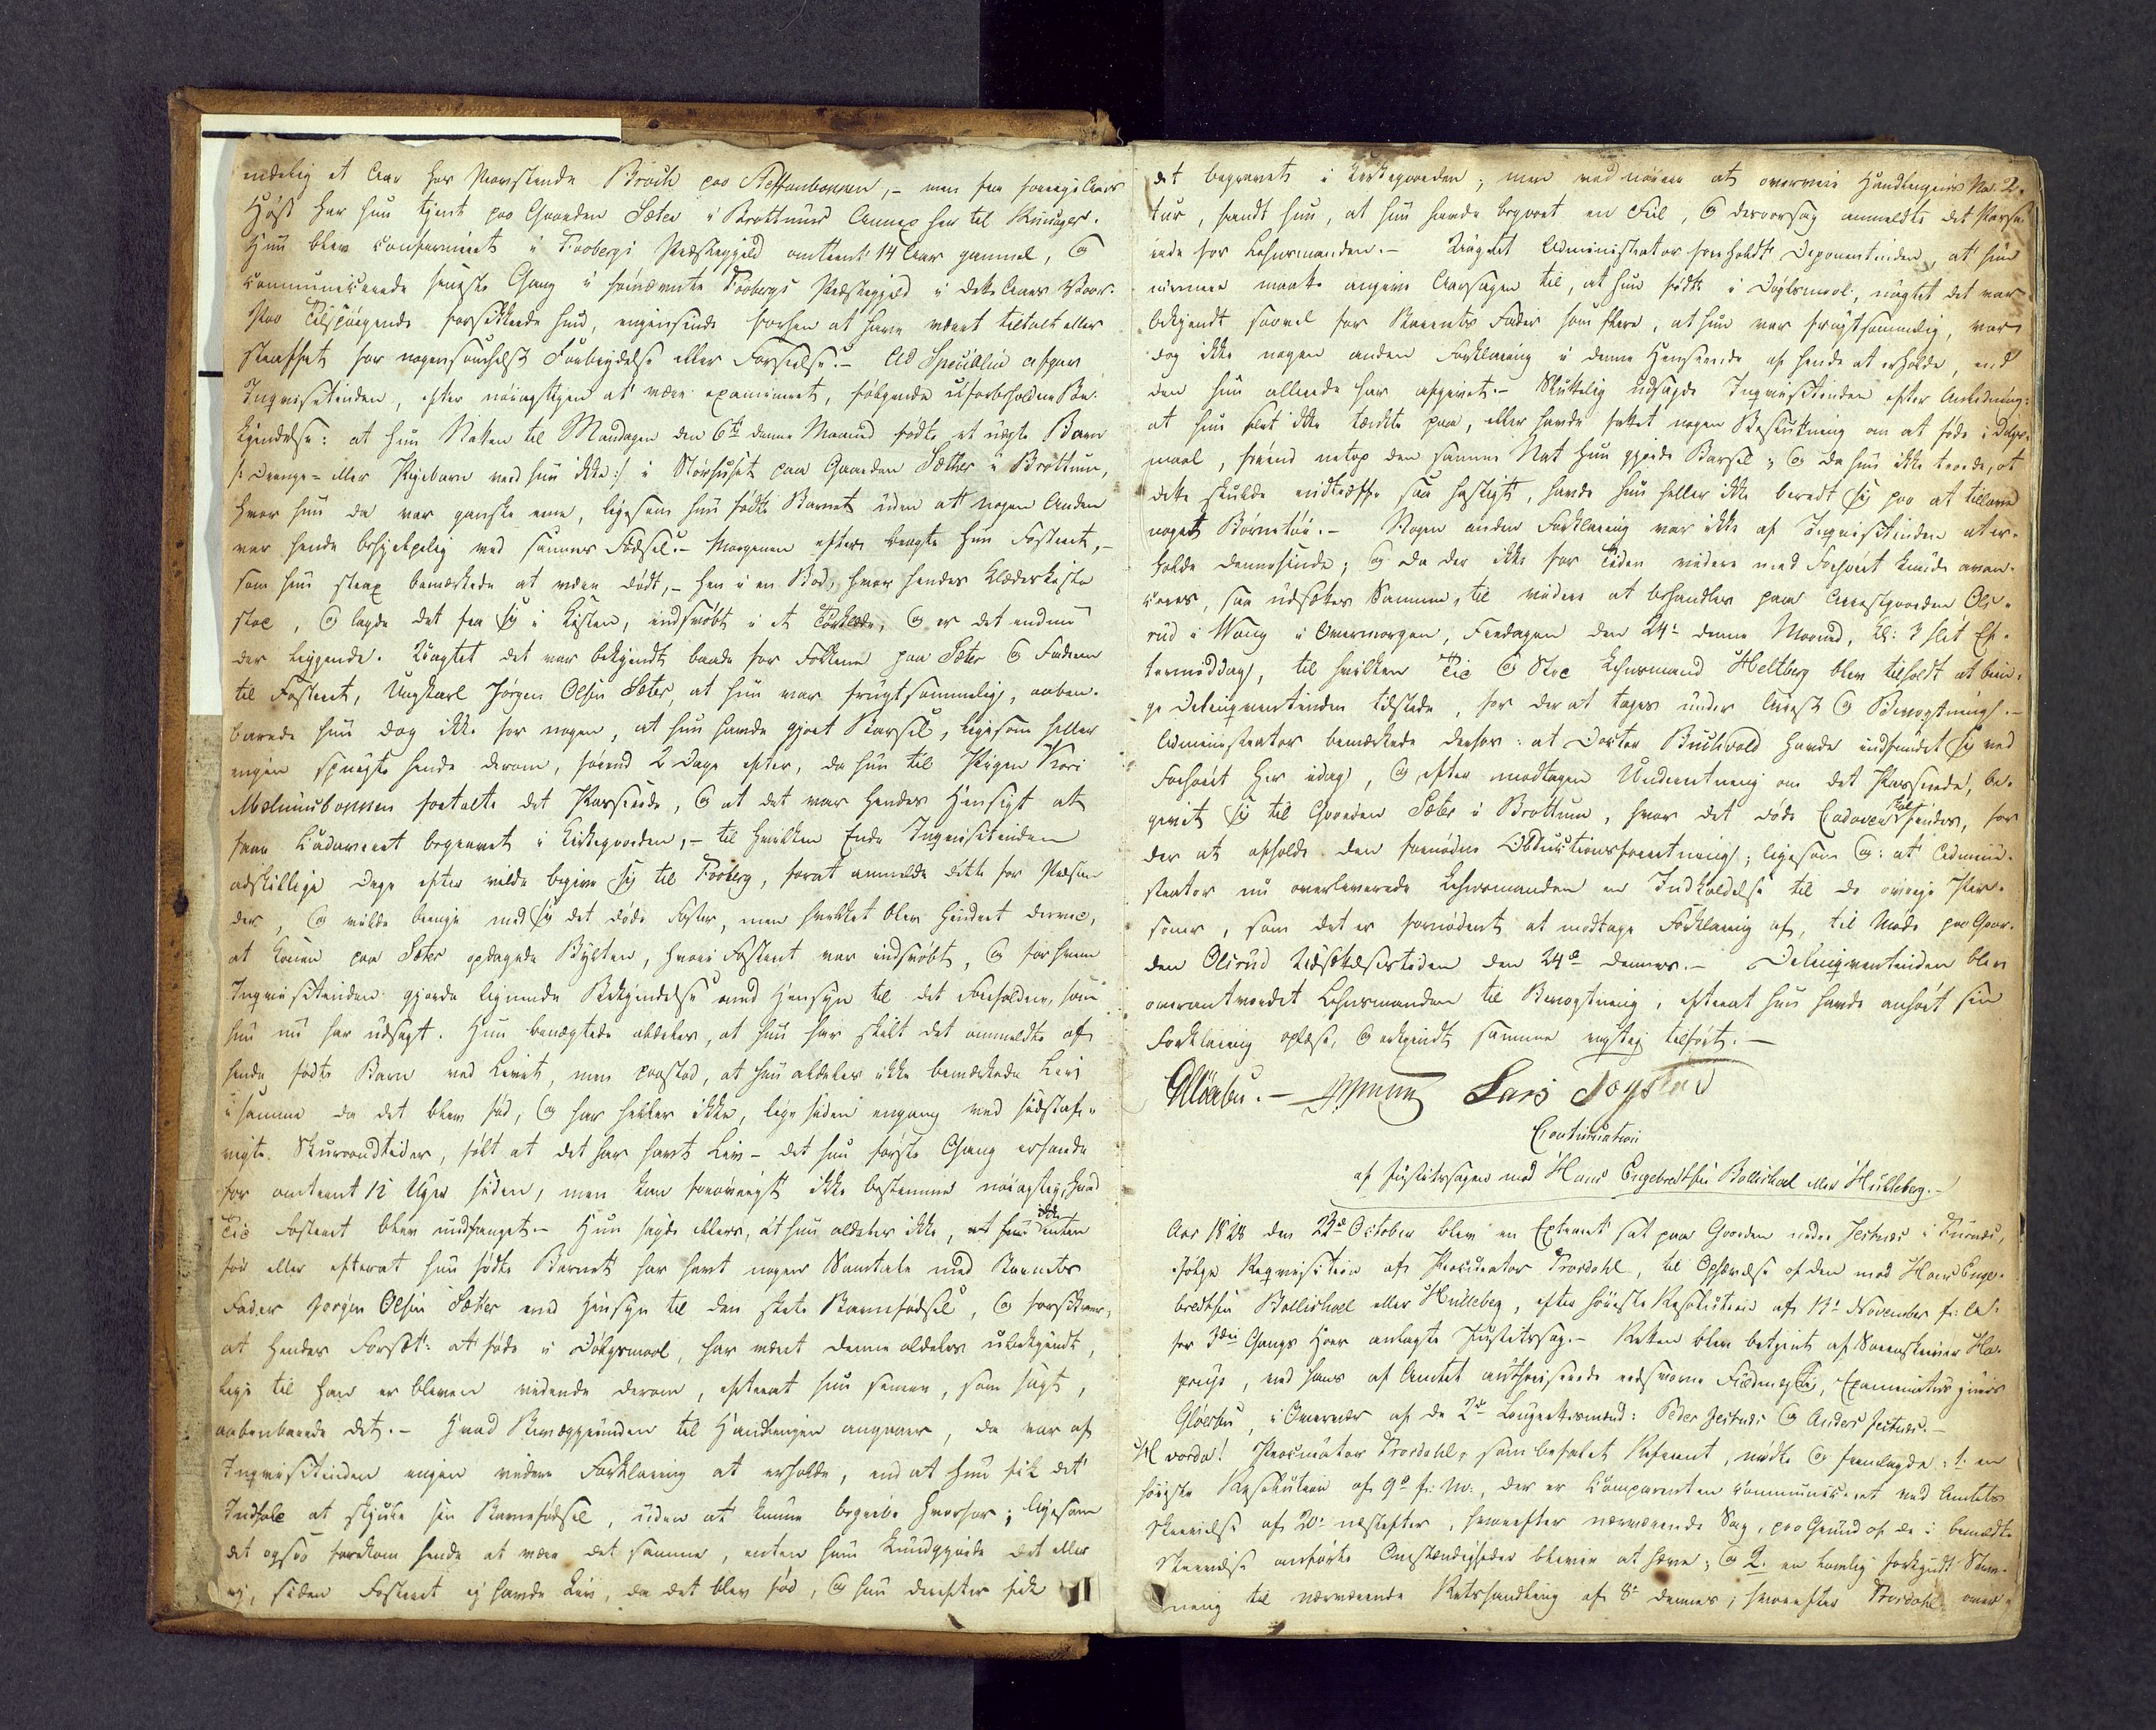 nælig et Aar hos Provstinde Brock paa Steffenbonnen, – men fra forrige Aars
Høst har hun tjent paa Gaarden Sæter i Brøttums Annex her til Ringsager.
Hun blev confirmeret i Faabergs Præstegjeld omtrent 14 Aar gammel, og
communicerede seneste Gang i forinævnte Faabergs Præstegjeld i dette Aars Vaar.
Paa Tilspørgende forsikkrede hun, ingensinde forhen at have været tiltalt eller
straffet for nogensomhelst Forbrydelse eller Forseelse. – Ad Speciblia afgav
Inqvisitinden, efter nøiagtigen at være examineret, følgende uforbeholdne Be-
kjendelse: at hun Natten til Mandagen den 6te denne Maaned fødte et uægte Barn
/: Drenge- eller Pigebarn veed hun ikke :/ i Størhuset paa Gaarden Sæther i Brøttum,
hvor hun da var ganske ene, ligesom hun fødte Barnet uden at nogen Anden
var hende behjelpelig ved samme Fødsel. – Morgenen efter bragte hun Fosteret, –
som hun strax bemærkede at være dødt, – hen i en Bod, hvor hendes Klædeskiste
stod, og lagde det fra sig i Kisten, indsvøbt i et Forklæde, og er det endnu
der liggende. Uagtet det var bekjendt baade for Folkene paa Sæter og Faderen
til Fosteret, Ungkarl Jørgen Olsen Sæter, at hun var frugtsommelig, aaben-
barede hun dog ikke for nogen, at hun havde gjort Barsel, ligesom heller
ingen spurgte hende derom, førend 2 Dage efter, da hun til Pigen Kari
Mælumsbonnen fortalte det Passerede, og at det var hendes Hensigt at
faae Cadaveret begravet i Kirkegaarden, – til hvilken Ende Inqvisitinden
adskillige Dage efter vilde begive sig til Faaberg, forat anmelde dette for Præsten
der, og vilde bringe med sig det døde Foster, men hvilket blev hindret derved,
at Konen paa Sæter opdagede Bylten, hvori Fosteret var indsvøbt, og for hvem
Inqvisitinden gjorde lignende Bekjendelse med Hensyn til det Forefaldne, som
hun nu har udsagt. Hun benægtede aldeles, at hun har skilt det ommeldte af
hende fødte Barn ved Livet, men paastod, at hun aldeles ikke bemærkede Liv
i samme da det blev fød, og har heller ikke, lige siden engang ved sidstaf-
vigte Skuraandtider, følt at det har havt Liv – det hun første Gang erfarede
for omtrent 12 Uger siden, men kan forøvrigt ikke bestemme nøiagtig, hvad
Tid Fosteret blev undfanget. – Hun sagde ellers, at hun aldeles ikke, at hun ikke enten
før eller efterat hun fødte Barnet har havt nogen Samtale med Barnets
Fader Jørgen Olsen Sæter med Hensyn til den skete Barnefødsel, og forsikrer,
at hendes Forsæt: at føde i Dølgsmaal, har været denne aldeles ubekjendt,
lige til han er bleven vidende derom, efterat hun senere, som sagt,
aabenbarede det. – Hvad Bevæggrunden til Handlingen angaaer, da var af
Inqvisitinden ingen videre Forklaring at erholde, end at hun fik det
Indfald at skjule sin Barnefødsel, uden at kunne begribe hvorfor; ligesom
det ogsaa forekom hende at være det samme, enten hun kundgjorde det eller
ej, siden Fosteret ej havde Liv, da det blev fød, og hun derefter fik
det begravet i Kirkegaarden; men ved nøiere at overveie Handlingens Na- 2.
tur, fandt hun, at hun havde begaaet en Feil, og derovrsag anmeldte det Passe-
rede for Lehnsmanden. – Uagtet Administrator foreholdt Deponentinden, at hun
nærmere maatte angive Aarsagen til, at hun fødte i Dølgsmaal, uagtet det var
bekjendt saavel for Barnets Fader som flere, at hun var frugtsommelig, var
dog ikke nogen anden Forklaring i denne Henseende af hende at erholde, end
den hun allerede har afgivet. – Sluttelig udsagde Inqvisitinden efter Anledning:
at hun slet ikke tænkte paa, eller havde fattet nogen Beslutning om at føde i Dølgs-
maal, førend netop den samme Nat hun gjorde Barsel; og da hun ikke troede, at
dette skulde indtræffe saa hastigt, havde hun heller ikke beredt sig paa at tillave
noget Børnetøi. – Nogen anden Forklaring var ikke af Inqvisitinden at er-
holde dennesinde; og da der ikke for Tiden videre med Forhøret kunde avan-
ceres, saa udsættes Samme, til videre at behandles paa Arrestgaarden Ols-
rud i Vang i Overmorgen, Fredagen den 24de denne Maaned, Kl: 3 slet Ef-
termiddag, til hvilken Tid og Sted Lehnsmand Heltberg blev tilholdt at brin-
ge Delinqventinden tilstede, for der at tages under Arrest og Bevogtning. –
Administrator bemærkede derhos: at Doctor Buchvold havde indfundet sig ved
Forhøret her idag, og, efter modtagen Underretning om det Passerede, be-
givet sig til Gaarden Sæter i Brøttum, hvor det døde Cadaver skal findes, for
der at afholde den fornødne Obductionsforretning; ligesom og: at Admini-
strator nu overleverede Lehnsmanden en Indkaldelse til de øvrige Per-
soner, som det er fornødent at modtage Forklaring af, til Møde paa Gaar-
den Olsrud Udsættelsestiden den 24de dennes. – Delinqventinden blev
overantvordet Lehnsmanden til Bevogtning, efterat hun havde anhørt sin
Forklaring oplæse, og erkjendt samme rigtig tilført. –
Gløerbu. – Lars Toystad
Continuation
af Justitssagen mod Hans Engebrethsen Bollishoel eller Hulleberg. –
Aar 1828 den 22de October blev en Extraret sat paa Gaarden nedre Jestnæs i Furnæs,
ifølge Reqvisition af Procurator Trosdahl, til Ophævelse af den mod Hans Enge-
bredthsen Bollishoel eller Hulleberg, efter høieste Resolution af 13de November f: A:
for 3die Gangs Hoer anlagte Justitssag. – Retten blev betjent af Sorenskriver Ha-
gerups, ved hans af Amtet authoriserede eedsvorne Fuldmægtig, Examinatus juris
Gløerbu, i Overvær af de 2de Laugrettesmænd: Peder Jestnæs og Anders Jestnæs. –
Hvorda! Procurator Trosdahl, som befalet Referent, mødte og fremlagde: 1. en
høieste Resolution af 9de f: M:, der er Comparenten communiceret ved Amtets
Skrivelse af 20de næstefter, hvorefter nærværende Sag, paa Grund af de i bemeldte
Skrivelse anførte Omstændigheder bliver at hæve; og 2. en lovlig forkyndt Stev-
ning til nærværende Retshandling af 8de dennes; hvorefter Trosdahl